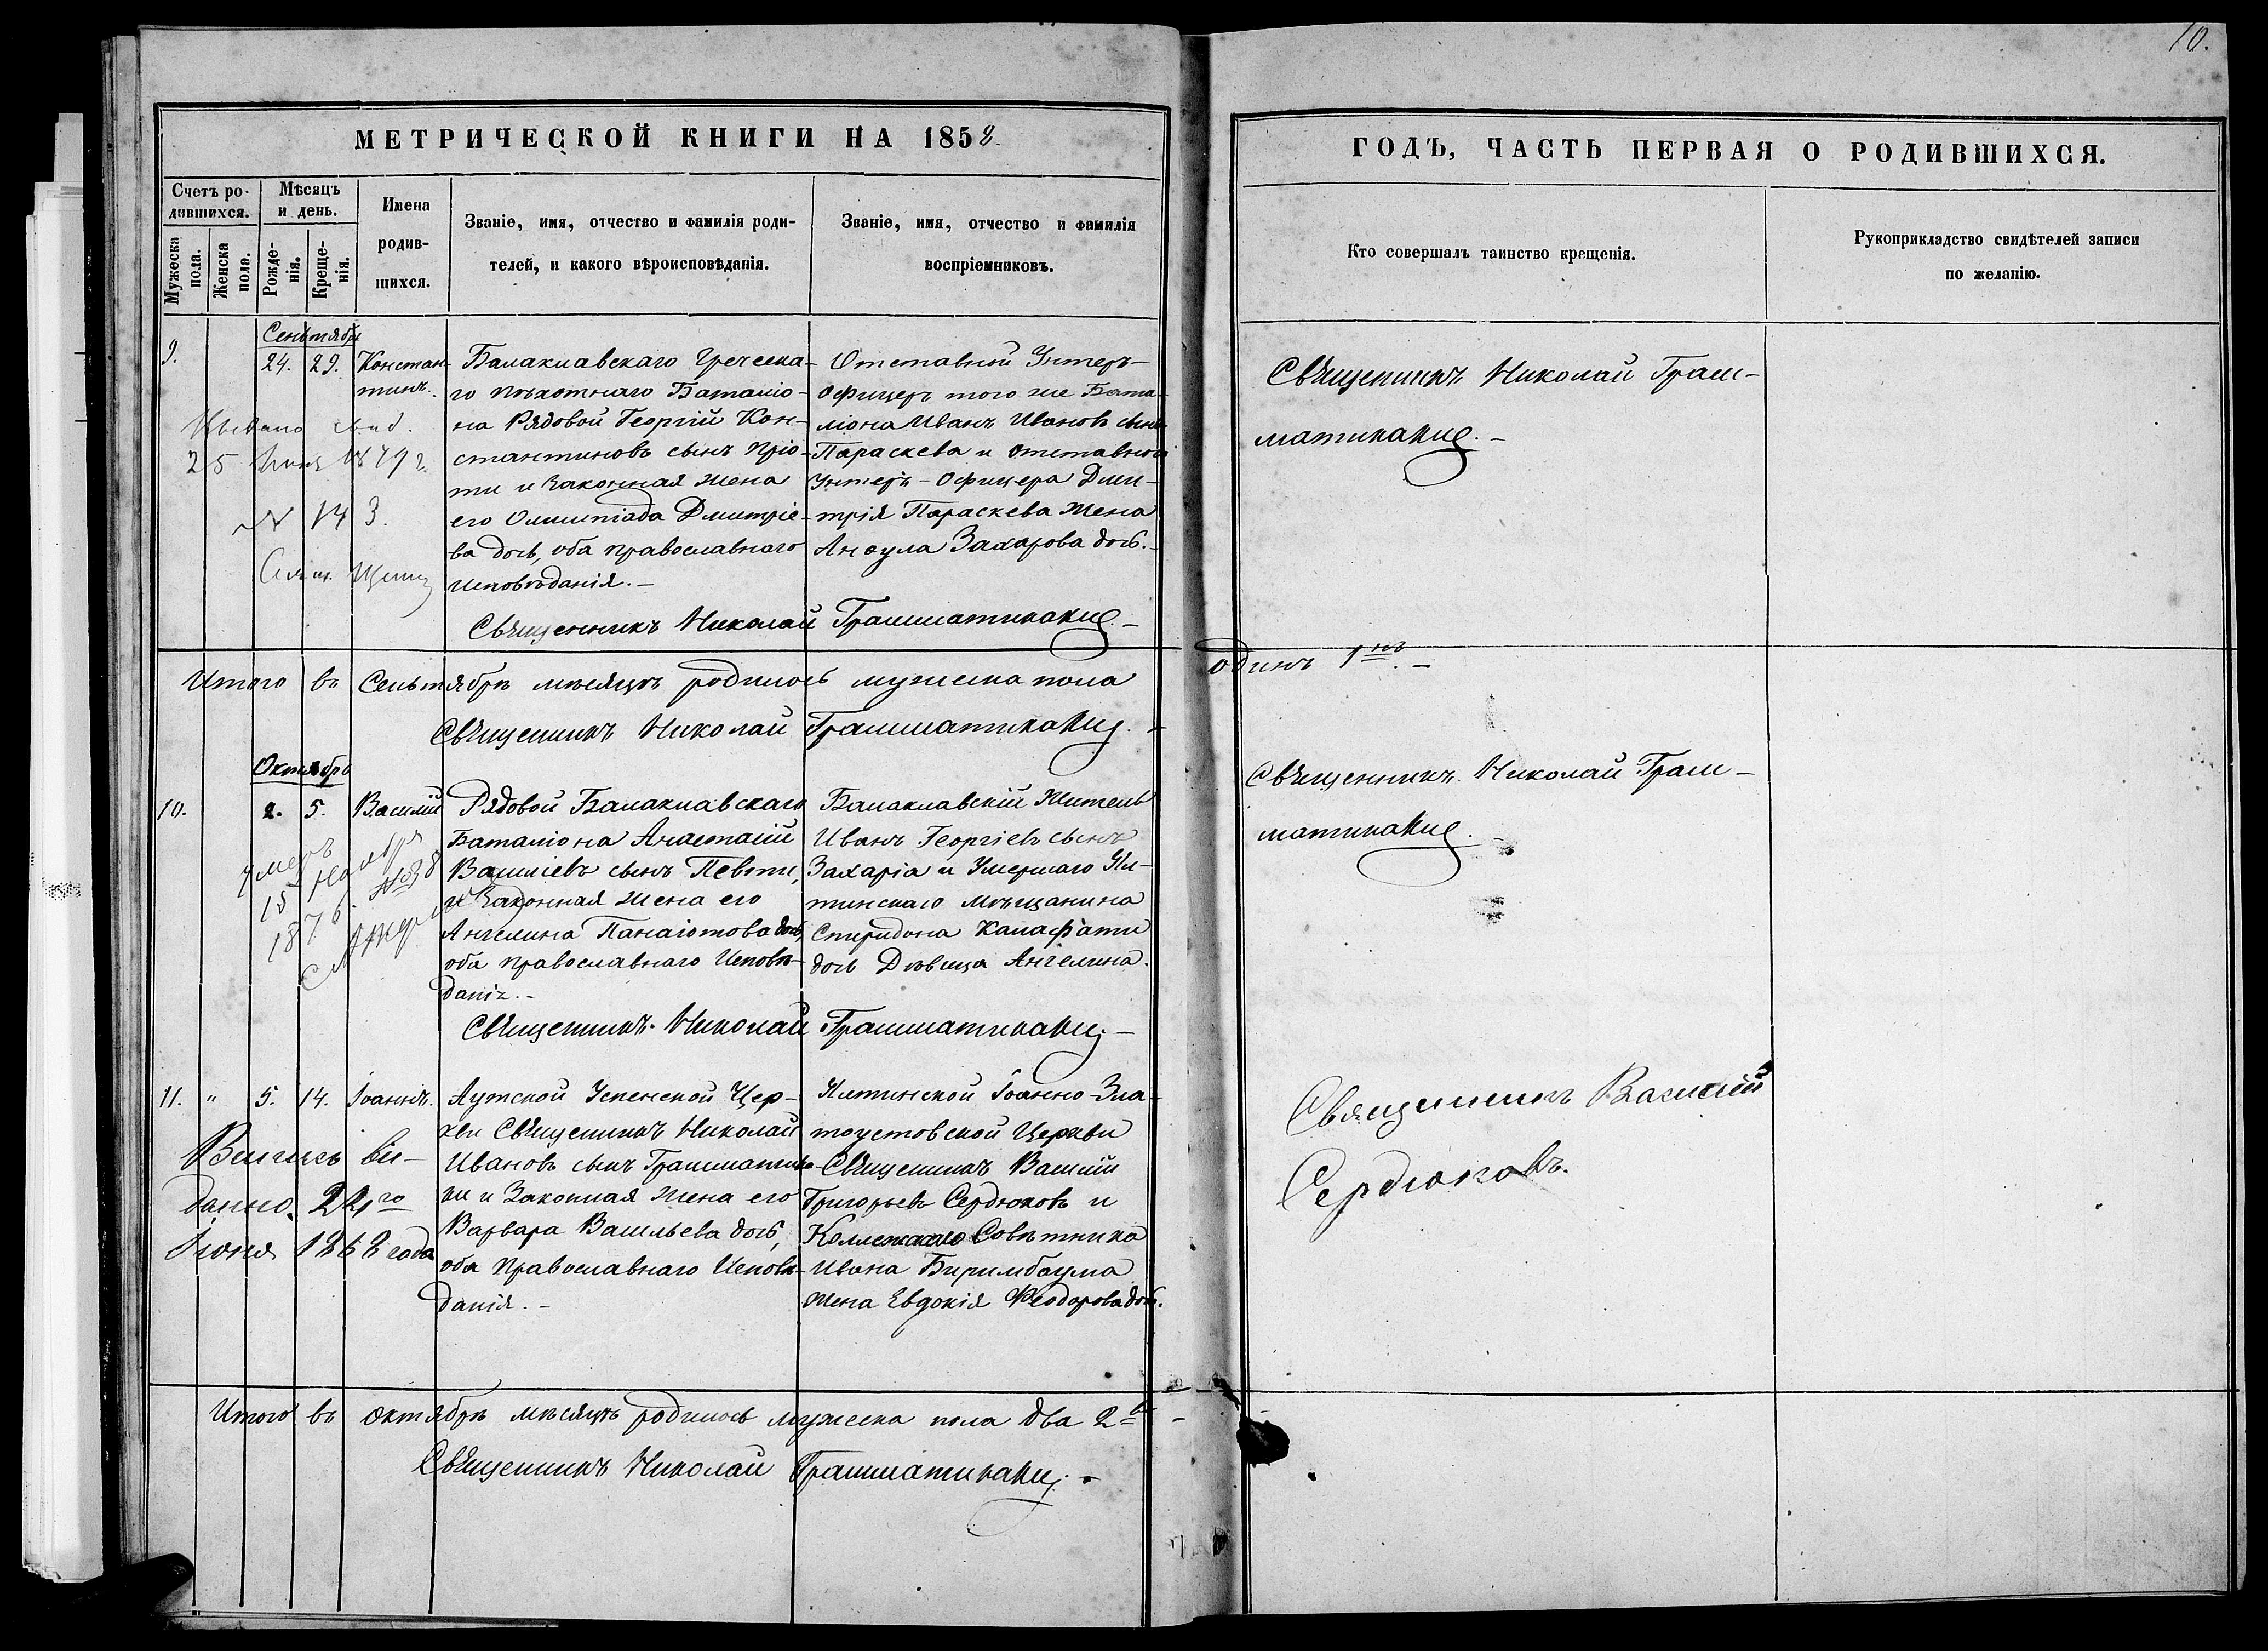 10.
МЕТРИЧЕСКОЙ КНИГИ НА 1858.
ГОДЪ, ЧАСТЬ ПЕРВАЯ О РОДИВШИХСЯ.
Счетъ ро-
дившихся.
Мужеска пола.
Женска пола.
Мѣсяцъ
и день.
Рожде-
нія.
Креще-
нія.
Имена
родив-
шихся.
Званіе, имя, отчество и фамилія роди-
телей, и какого вѣроисповѣданія.
Званіе, имя, отчество и фамилія
воспріемниковъ.
Кто совершалъ таинство крещенія.
Рукоприкладство свидѣтелей записи
по желанію.
Сентября
9. 24. 29. Констан-
тинъ.
Балаклавскаго Греческа-
го пѣхотнаго Баталіо-
на Рядовой Георгій Кон-
стантиновъ сынъ Кріо-
ти и Законная жена
его Олимпіада Дмитріе-
ва дочь, оба православнаго
исповѣданія. –
Отставной Унтеръ-
офицеръ того же Бата-
ліона Иванъ Ивановъ сынъ
Параскева и отставного
Унтеръ-Офицера Дми-
трія Параскева Жена
Анѳула Захарова дочь. –
Священникъ Николай Грам-
матикаки. –
свид.
25 1879 г.
№ 143.
Священникъ Николай Грамматикаки. –
Итого въ Сентябрѣ мѣсяцѣ родилось мужеска пола одинъ 1нъ. –
Священникъ Николай Грамматикаки. –
Октября
10. 2. 5. Василій
Рядовой Балаклавскаго
Баталіона Анастасій
Васильевъ сынъ Певти,
и Законная жена его
Ангелина Панаіотова дочь,
оба православнаго Исповѣ-
данія. –
Балаклавскій Житель
Иванъ Георгіевъ сынъ
Захаріа и Умершаго Ял-
тинскаго мѣщанина
Спиридона Калафати
дочь Дѣвица Ангелина.
Священникъ Николай Грам-
матикаки. –
Умеръ
15 ноября
1876.
Священникъ Николай Грамматикаки. –
11. " 5. 14. Іоаннъ.
Аутской Успенской Цер-
кви Священникъ Николай
Ивановъ сынъ Грамматика-
ки и Законная жена его
Варвара Васильева дочь,
оба Православнаго Исповѣ-
данія. –
Ялтинской Іоанно-Зла-
тоустовской Церкви
Священникъ Василій
Григорьевъ Сердюковъ и
Коллежскаго Совѣтника
Ивана Биримбаума
жена Евдокія Ѳеодорова дочь.
Священникъ Василій
Сердюковъ.
вы-
данно 22го
Іюня 1868 года
Итого въ октябрѣ мѣсяцѣ родилось мужеска пола два 2. –
Священникъ Николай Грамматикаки. –